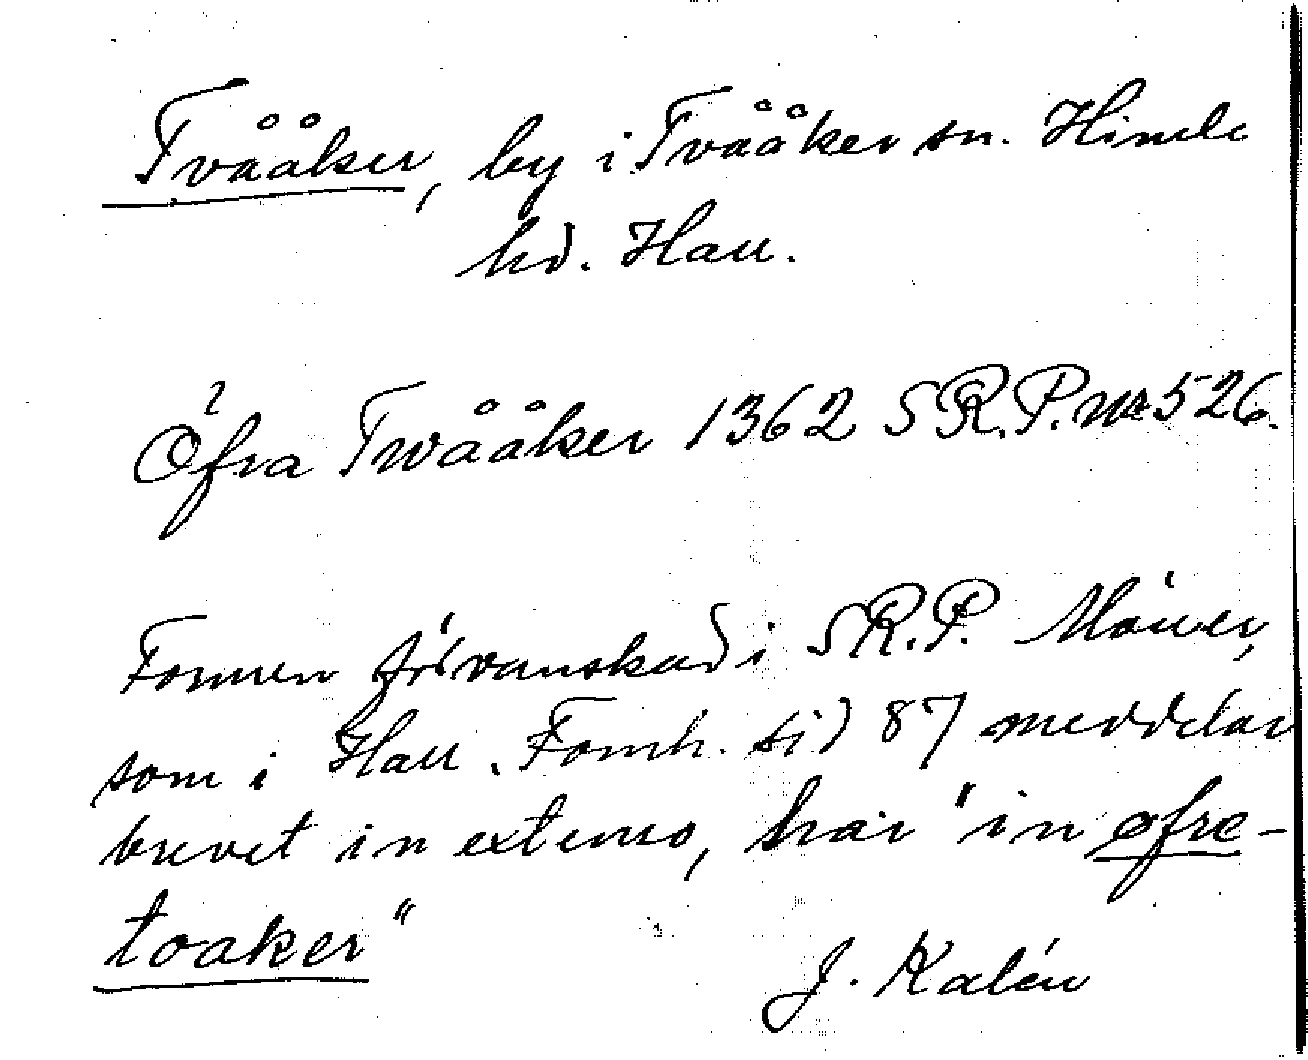 Tvååker, by i Tvååker sn. Himle
hd. Hall.
Öfra Twååker 1362 SR.P. nr 526.
Formen förvanskad i SR.P. Möller,
som i Hall. Fornh. sid 87 meddelar
brevet in extenso, har "in øfre-
toaker"
J. Kalén